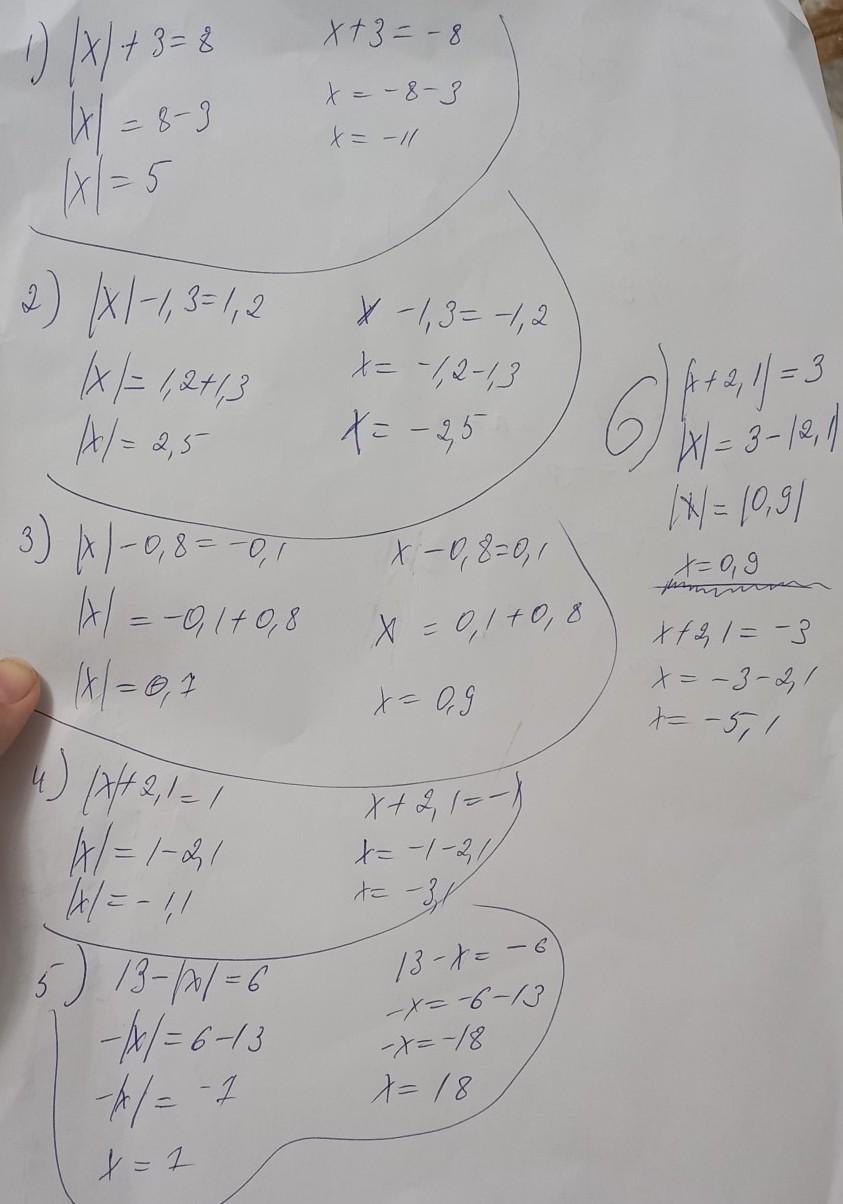 1) |x| + 3 = 8
|x| = 8 - 3
|x| = 5
x + 3 = -8
x = -8 - 3
x = -11
2) |x| - 1,3 = 1,2
|x| = 1,2 + 1,3
|x| = 2,5
x - 1,3 = -1,2
x = -1,2 - 1,3
x = -2,5
3) |x| - 0,8 = -0,1
|x| = -0,1 + 0,8
|x| = 0,7
x - 0,8 = 0,1
x = 0,1 + 0,8
x = 0,9
4) |x| + 2,1 = 1
|x| = 1 - 2,1
|x| = -1,1
x + 2,1 = -1
x = -1 - 2,1
x = -3,1
5) 13 - |x| = 6
-|x| = 6 - 13
-|x| = -7
x = 7
13 - x = -6
-x = -6 - 13
-x = -18
x = 18
6) |x + 2,1| = 3
|x| = 3 - |2,1|
|x| = |0,9|
x = 0,9
x + 2,1 = -3
x = -3 - 2,1
x = -5,1